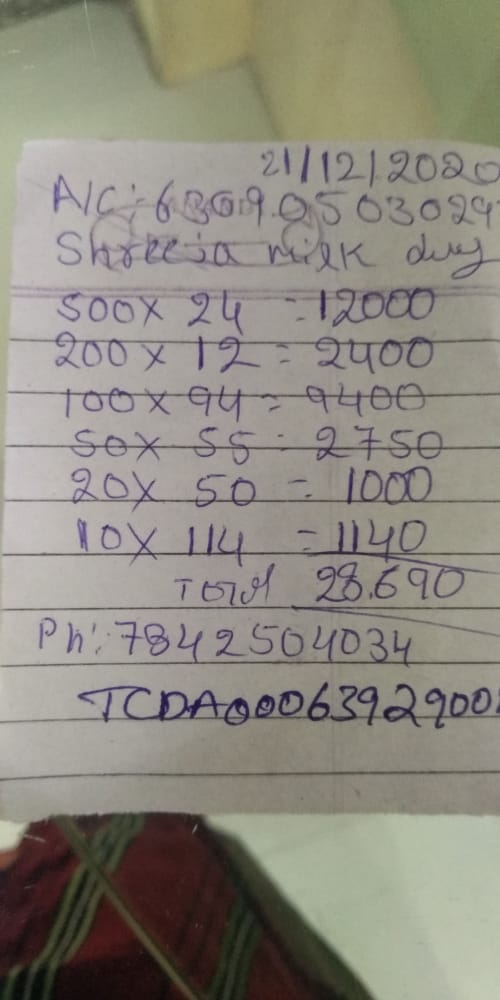 21/12/2020
A/C: 63090503024
Shreeja milk
500 x 24 = 12000
200 x 12 = 2400
100 x 94 = 9400
50 x 55 = 2750
20 x 50 = 1000
10 x 114 = 1140
Total 28.690
Ph: 7842504034
TCDA00063929001